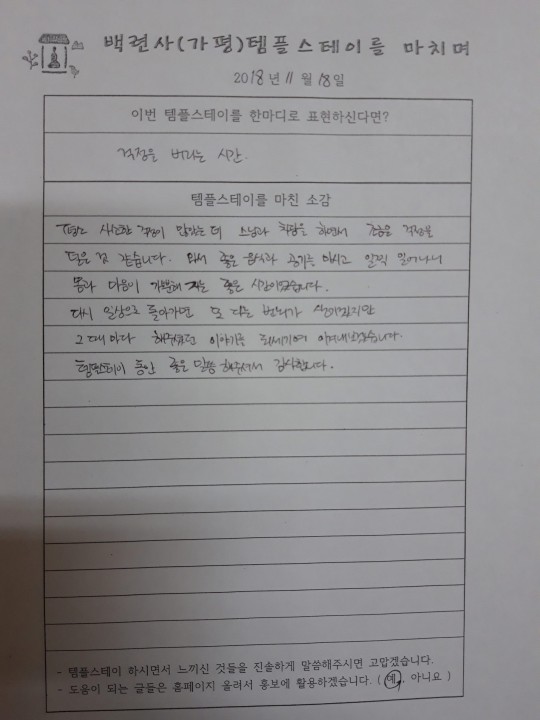 백련사(가평)템플스테이를 마치며
2018년 11월 18일
이번 템플스테이를 한마디로 표현하신다면?
걱정을 버리는 시간.
템플스테이를 마친 소감
평소 사소한 걱정이 많았는데 스님과 차담을 하면서 조금은 걱정을
덜은 것 같습니다. 와서 좋은 음식과 공기를 마시고 일찍 일어나니
몸과 마음이 가벼워 지는 좋은 시간이었습니다.
다시 일상으로 돌아가면 또 다른 번뇌가 생기겠지만
그때마다 해주셨던 이야기를 되새기며 이겨내겠습니다.
템플스테이 동안 좋은 말씀 해주셔서 감사합니다.
- 템플스테이 하시면서 느끼신 것들을 진솔하게 말씀해주시면 고맙겠습니다.
- 도움이 되는 글들은 홈페이지 올려서 홍보에 활용하겠습니다. ( 예, 아니요 )